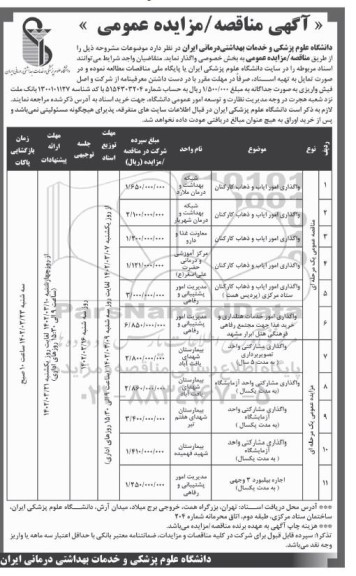 « آگهی مناقصه/مزایده عمومی »
دانشگاه علوم پزشکی و خدمات بهداشتی‌درمانی ایران در نظر دارد موضوعات مشروحه ذیل را
از طریق مناقصه/مزایده عمومی به بخش خصوصی واگذار نماید. متقاضیان واجد شرایط می‌توانند
اسناد مربوطه را در سایت دانشگاه علوم پزشکی ایران یا پایگاه ملی مناقصات مطالعه نموده و در
صورت تمایل به تهیه اسناد، صرفاً در مهلت مقرر با در دست داشتن معرفینامه از شرکت و اصل
فیش واریزی به صورت جداگانه به مبلغ ۱/۵۰۰/۰۰۰ ریال به حساب شماره
بانک ملت
نزد شعبه هجرت در وجه مدیریت نظارت و توسعه امور عمومی دانشگاه، جهت خرید اسناد به آدرس ذکرشده مراجعه نمایند.
لازم به ذکر است دانشگاه علوم پزشکی ایران در قبال اطلاعات سایت های متفرقه، پذیرای هیچگونه مسئولیتی نمی‌باشد و
پس از خرید اوراق به هیچ عنوان مبالغ دریافتی عودت داده نخواهد شد.
ردیف موضوع نام واحد مبلغ سپرده شرکت در مناقصه /مزایده (ریال) مهلت توزیع اسناد جلسه توجیهی مهلت ارائه پیشنهادات زمان بازگشایی پاکات
مناقصه عمومی یک مرحله ای
۱ واگذاری امور ایاب و ذهاب کارکنان شبکه بهداشت و درمان ملارد ۱/۶۵۰/۰۰۰/۰۰۰
۲ واگذاری امور ایاب و ذهاب کارکنان شبکه بهداشت و درمان شهریار ۲/۱۰۰/۰۰۰/۰۰۰
۳ واگذاری امور ایاب و ذهاب کارکنان معاونت غذا و دارو ۱/۴۰۰/۰۰۰/۰۰۰
۴ واگذاری امور ایاب و ذهاب کارکنان مرکز آموزشی و درمانی حضرت علی‌اصغر(ع) ۱/۱۲۱/۰۰۰/۰۰۰
۵ واگذاری امور ایاب و ذهاب کارکنان ستاد مرکزی (پردیس همت) مدیریت امور پشتیبانی و رفاهی ۳/۰۰۰/۰۰۰/۰۰۰
۶ واگذاری امور خدمات هتلداری و خرید غذا جهت مجتمع رفاهی فرهنگی هتل ابرار مشهد مدیریت امور پشتیبانی و رفاهی ۶/۸۵۰/۰۰۰/۰۰۰
مزایده عمومی یک مرحله ای
۷ واگذاری مشارکتی واحد تصویربرداری (به مدت ۵ سال) بیمارستان شهدای یافت آباد ۲/۸۰۰/۰۰۰/۰۰۰
۸ واگذاری مشارکتی واحد آزمایشگاه (به مدت یکسال) بیمارستان شهدای یافت آباد ۲/۸۶۰/۰۰۰/۰۰۰
۹ واگذاری مشارکتی واحد آزمایشگاه (به مدت یکسال) بیمارستان شهدای هفتم تیر ۳/۴۰۰/۰۰۰/۰۰۰
۱۰ واگذاری مشارکتی واحد آزمایشگاه (به مدت یکسال) بیمارستان شهید فهمیده ۱/۴۱۰/۰۰۰/۰۰۰
۱۱ اجاره بیلبورد ۳ وجهی (به مدت یکسال) مدیریت امور پشتیبانی و رفاهی ۱/۲۵۰/۰۰۰/۰۰۰
***آدرس محل دریافت اسناد: تهران، بزرگراه همت، خروجی برج میلاد، میدان آرش، دانشگاه علوم پزشکی ایران،
ساختمان ستاد مرکزی، طبقه دوم، اتاق محرمانه شماره ۲۰۴
***هزینه چاپ آگهی به عهده برنده مناقصه/مزایده می‌باشد.
تذکر۱: سپرده قابل قبول برای شرکت در کلیه مناقصات و مزایدات، ضمانتنامه معتبر بانکی با حداقل اعتبار سه ماهه یا واریز
وجه نقد می‌باشد.
دانشگاه علوم پزشکی و خدمات بهداشتی درمانی ایران